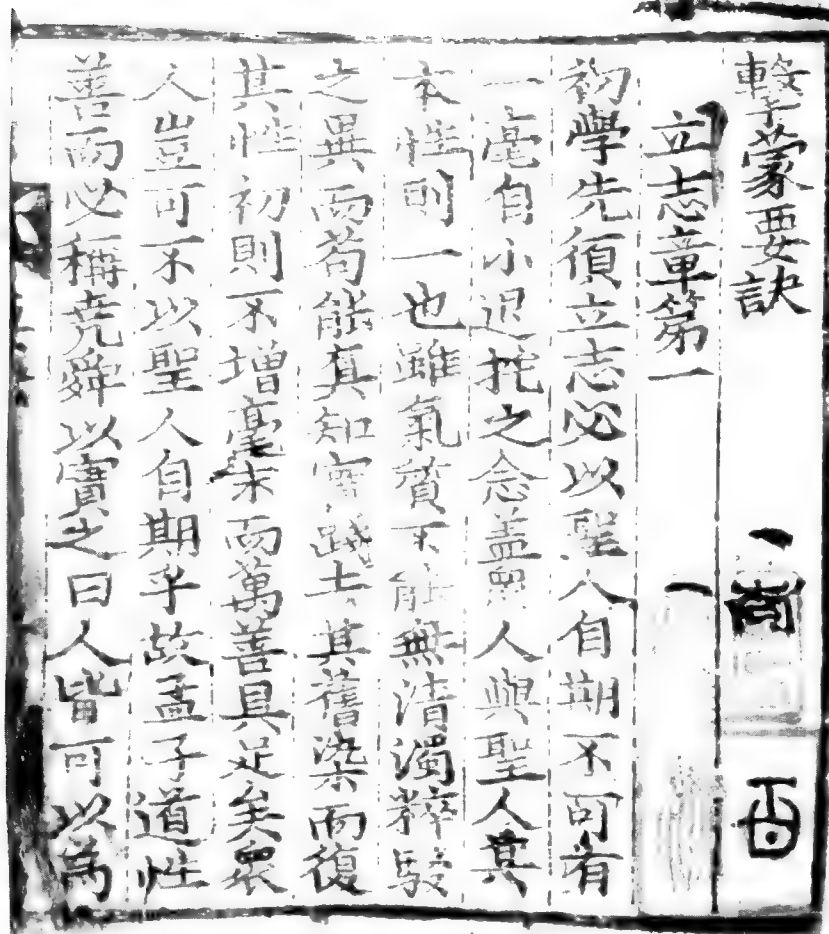 擊蒙要訣
立志章第一
初學先須立志必以聖人自期不可有
一毫自小退托之念盖衆人與聖人其
本性則一也雖氣質不能無淸濁粹駁
之異而苟能眞知實踐去其舊染而復
其性初則不增毫末而萬善具足矣衆
人豈可不以聖人自期乎故孟子道性
善而必稱堯舜以實之曰人皆可以爲